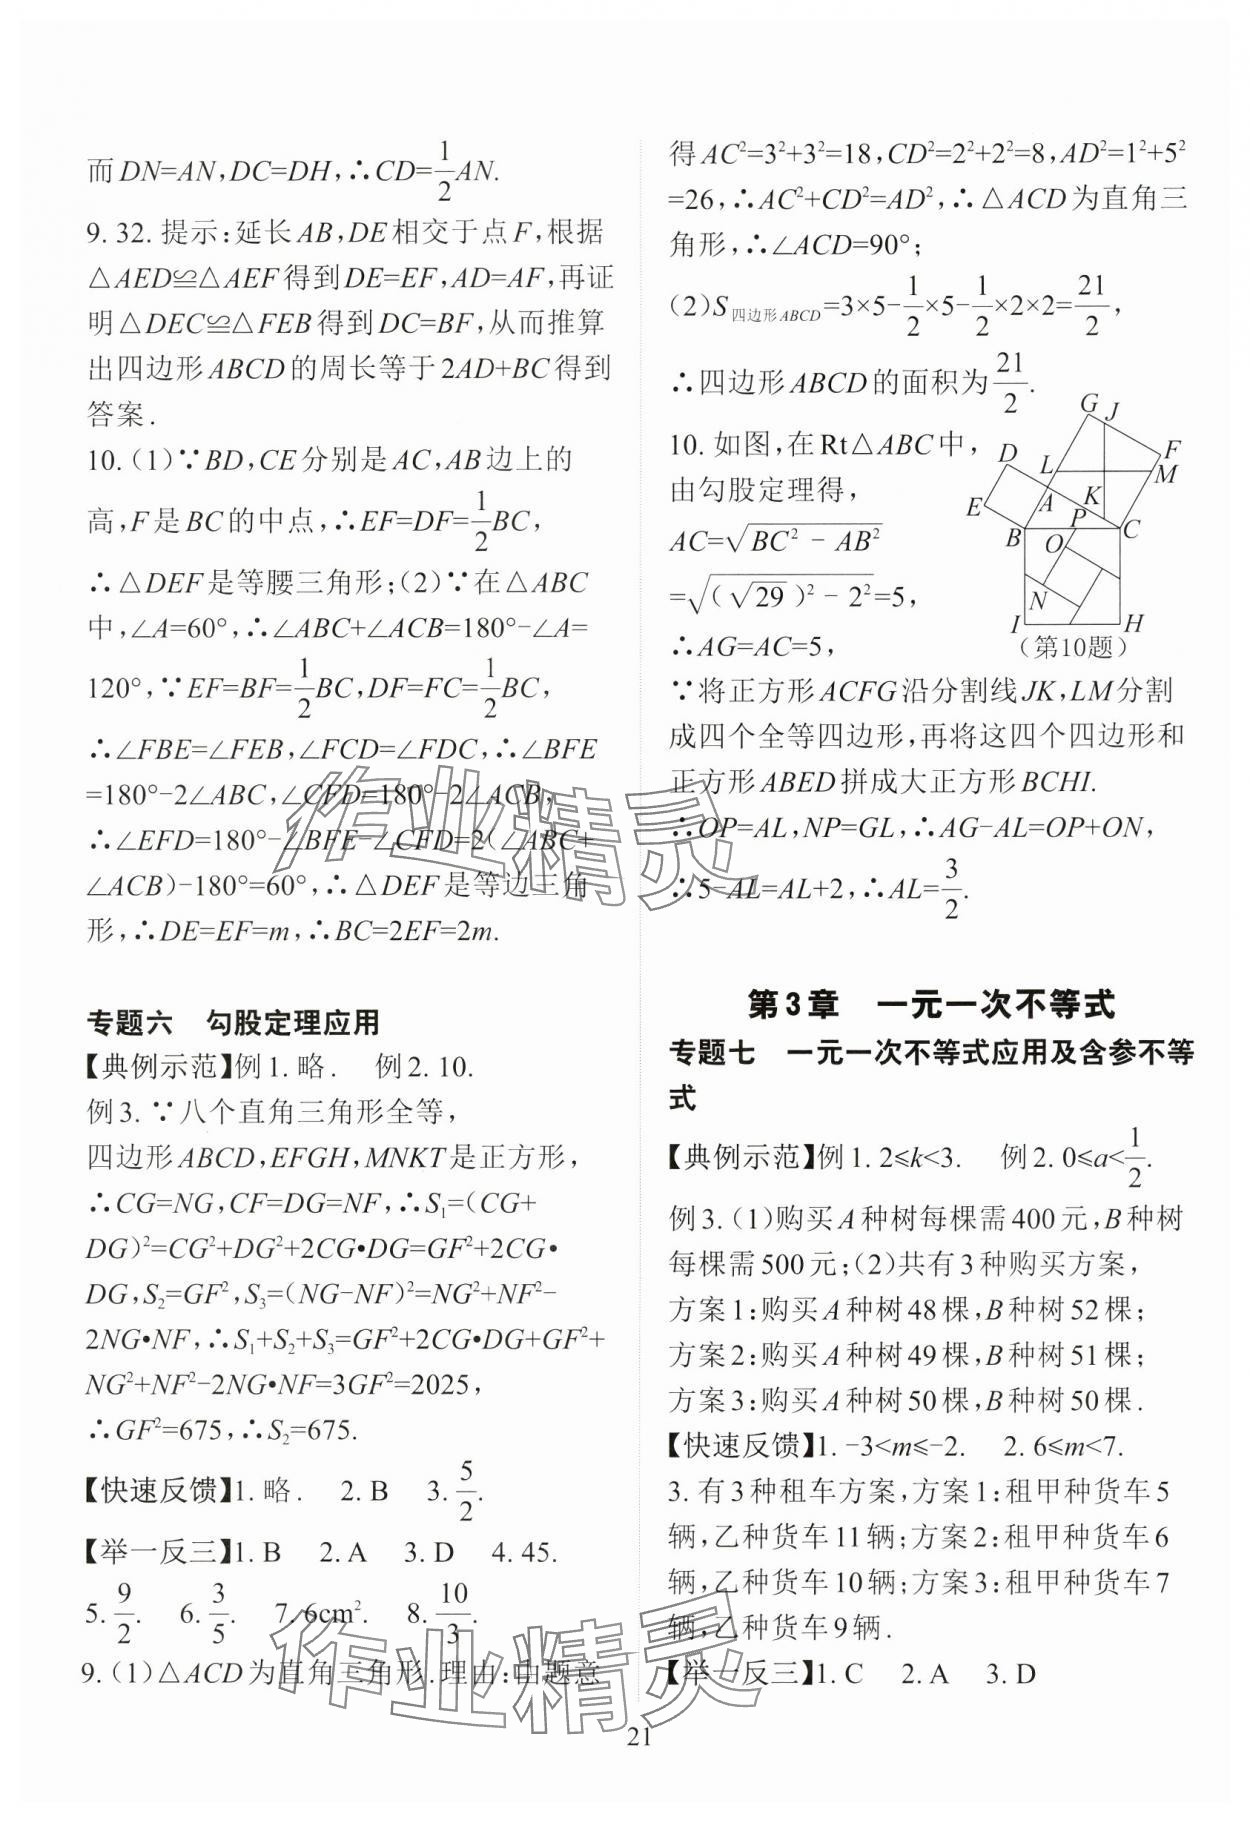 而DN=AN,DC=DH,∴CD=1/2AN.
9.32.提示:延长AB,DE相交于点F,根据
△AED≌△AEF得到DE=EF,AD=AF,再证
明△DEC≌△FEB得到DC=BF,从而推算
出四边形ABCD的周长等于2AD+BC得到
答案.
10.(1)∵BD,CE分别是AC,AB边上的
高,F是BC的中点,∴EF=DF=1/2BC,
∴△DEF是等腰三角形;(2)∵在△ABC
中,∠A=60°,∴∠ABC+∠ACB=180°-∠A=
120°,∵EF=BF=1/2BC,DF=FC=1/2BC,
∴∠FBE=∠FEB,∠FCD=∠FDC,∴∠BFE
=180°-2∠ABC,∠CFD=180°-2∠ACB,
∴∠EFD=180°-∠BFE-∠CFD=2(∠ABC+
∠ACB)-180°=60°,∴△DEF是等边三角
形,∴DE=EF=m,∴BC=2EF=2m.
专题六 勾股定理应用
【典例示范】例1.略. 例2.10.
例3.∵八个直角三角形全等,
四边形ABCD,EFGH,MNKT是正方形,
∴CG=NG,CF=DG=NF,∴S₁=(CG+
DG)²=CG²+DG²+2CG•DG=GF²+2CG•
DG,S₂=GF²,S₃=(NG-NF)²=NG²+NF²-
2NG•NF,∴S₁+S₂+S₃=GF²+2CG•DG+GF²+
NG²+NF²-2NG•NF=3GF²=2025,
∴GF²=675,∴S₂=675.
【快速反馈】1.略. 2.B 3.5/2.
【举一反三】1.B 2.A 3.D 4.45.
5.9/2. 6.3/5. 7.6cm². 8.10/3.
9.(1)△ACD为直角三角形.理由:由题意
得AC²=3²+3²=18,CD²=2²+2²=8,AD²=1²+5²
=26,∴AC²+CD²=AD²,∴△ACD为直角三
角形,∴∠ACD=90°;
(2)S四边形ABCD=3×5-1/2×5-1/2×2×2=21/2,
∴四边形ABCD的面积为21/2.
10.如图,在Rt△ABC中,
由勾股定理得,
AC=√(BC²-AB²)
=√((√29)²-2²)=5,
∴AG=AC=5,
G J
D L F M
E A K
B P C
O
N
I H
(第10题)
∵将正方形ACFG沿分割线JK,LM分割
成四个全等四边形,再将这四个四边形和
正方形ABED拼成大正方形BCHI.
∴OP=AL,NP=GL,∴AG-AL=OP+ON,
∴5-AL=AL+2,∴AL=3/2.
第3章 一元一次不等式
专题七 一元一次不等式应用及含参不等
式
【典例示范】例1.2≤k<3. 例2.0≤a<1/2.
例3.(1)购买A种树每棵需400元,B种树
每棵需500元;(2)共有3种购买方案,
方案1:购买A种树48棵,B种树52棵;
方案2:购买A种树49棵,B种树51棵;
方案3:购买A种树50棵,B种树50棵.
【快速反馈】1.-3<m≤-2. 2.6≤m<7.
3.有3种租车方案,方案1:租甲种货车5
辆,乙种货车11辆;方案2:租甲种货车6
辆,乙种货车10辆;方案3:租甲种货车7
辆,乙种货车9辆.
【举一反三】1.C 2.A 3.D
21
作业精灵
作业精灵